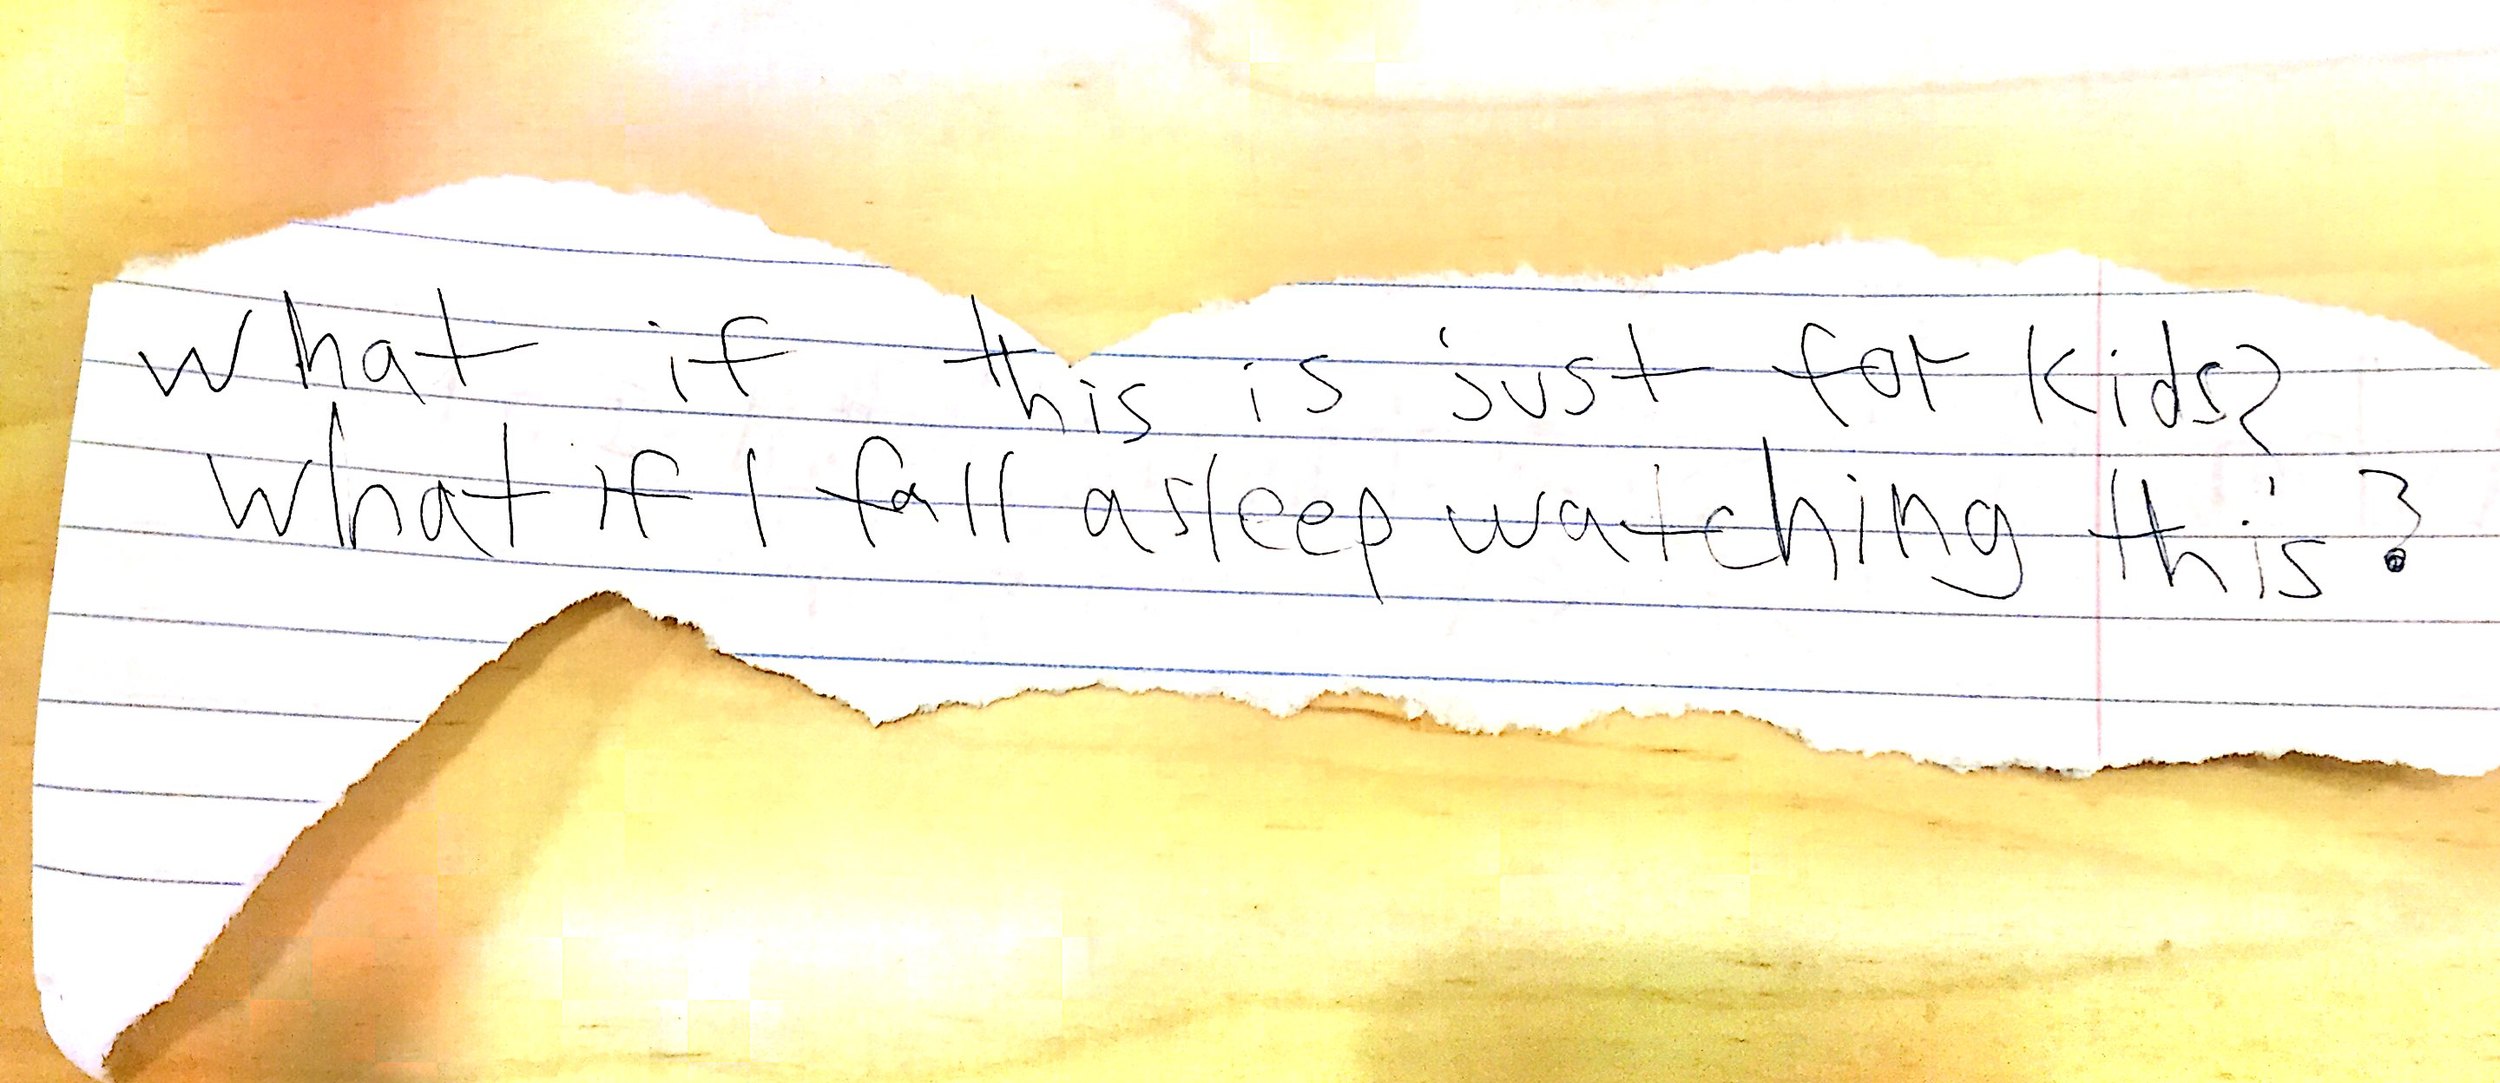 What if this is just for kids?
What if I fall asleep watching this?